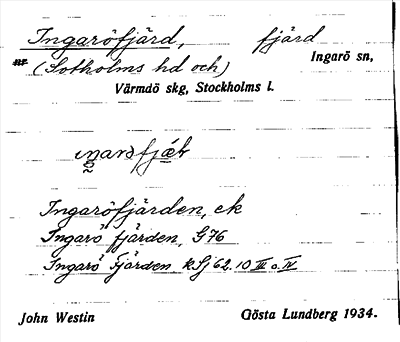 Ingaröfjärd, fjärd
Ingarö sn,
(Sotholms hd och)
Värmdö skg, Stockholms l.
Ingaröfjärden, ek
Ingarö fjärden, G76
Ingarö Fjärden kSj 62.10 III o. IV
John Westin Gösta Lundberg 1934.